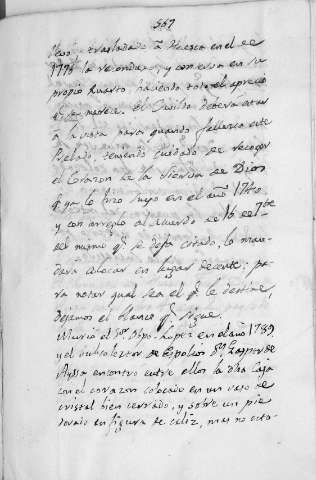 567
trasladado à Huesca en el de
1776 la recondu y con ella en su
propio Quarto, haciendo todo el aprecio
que merece. El Cavildo deberá estar
à la vista para quando fallezca este
Prelado, teniendo cuidado de recoger
el Corazon de la Sierva de Dios
q.e ya lo hizo suyo en el año 1760
y con arreglo al Acuerdo de 16 de 7bre
del mismo q.e se deja citado, lo man-
dará colocar en lugar decente; pa-
ra notar qual sea el q.e le destine,
dejamos el blanco q.e sigue.
Murio el S.r Obpo. Lopez en el año 1789,
y el subcolector de Espolios D.n Gaspar de
Ayssa encontro entre ellos la dha Caja
con el corazon colocado en un vaso de
cristal bien cerrado, y sobre un pie
dorado en figura de caliz, mas no esta-